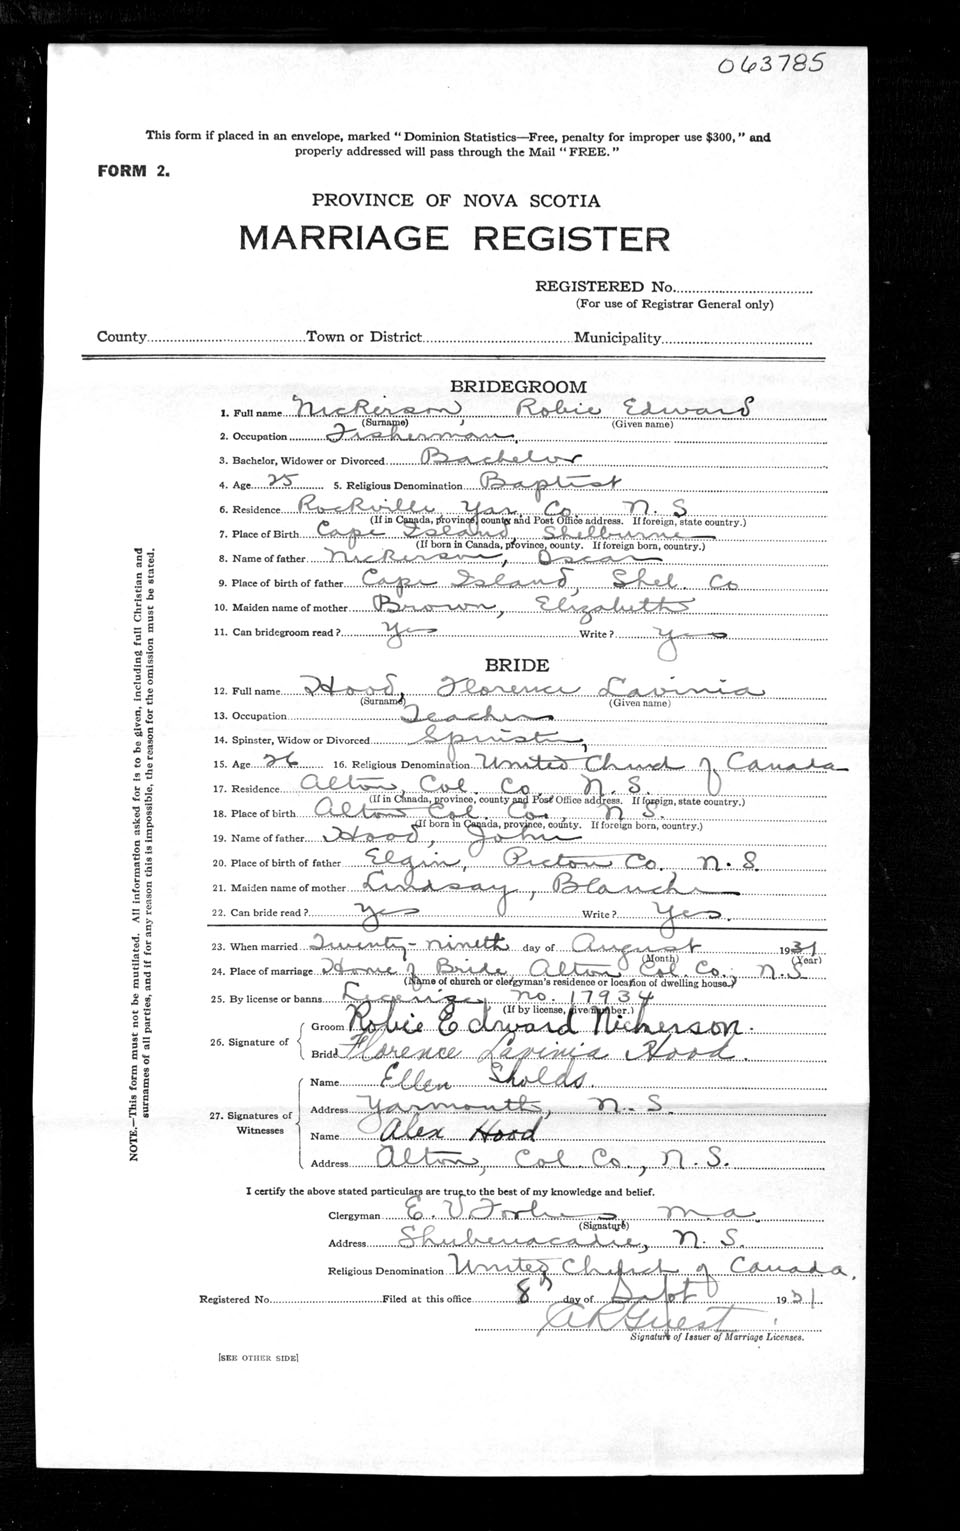 063785
This form if placed in an envelope, marked "Dominion Statistics—Free, penalty for improper use $300," and
properly addressed will pass through the Mail "FREE."
FORM 2.
PROVINCE OF NOVA SCOTIA
MARRIAGE REGISTER
REGISTERED No.
(For use of Registrar General only)
County Town or District Municipality
BRIDEGROOM
1. Full name Nickerson, Robie Edward
(Surname) (Given name)
2. Occupation Fisherman
3. Bachelor, Widower or Divorced Bachelor
4. Age 25 5. Religious Denomination Baptist
6. Residence Rockville Yar. Co. N. S
(If in Canada, province, county and Post Office address. If foreign, state country.)
7. Place of Birth Cape Island, Shelburne
(If born in Canada, province, county. If foreign born, country.)
8. Name of father Nickerson, Oscar
9. Place of birth of father Cape Island, Shel. Co
10. Maiden name of mother Brown, Elizabeth
11. Can bridegroom read? Yes Write? Yes
BRIDE
12. Full name Hood, Florence Lavinia
(Surname) (Given name)
13. Occupation Teacher
14. Spinster, Widow or Divorced Spinster
15. Age 26 16. Religious Denomination United Church of Canada
17. Residence Alton, Col. Co. N. S.
(If in Canada, province, county and Post Office address. If foreign, state country.)
18. Place of birth Alton Col. Co., N S.
(If born in Canada, province, county. If foreign born, country.)
19. Name of father Hood, John
20. Place of birth of father Elgin, Pictou Co. N. S.
21. Maiden name of mother Lindsay, Blanche
22. Can bride read? Yes Write? Yes.
23. When married Twenty-nineth day of August 1931
(Month) (Year)
24. Place of marriage Home of Bride, Alton Col. Co., N. S
(Name of church or clergyman's residence or location of dwelling house.)
25. By license or banns License, no. 17934
(If by license, give number.)
26. Signature of
Groom Robie Edward Nickerson.
Bride Florence Lavinia Hood.
27. Signatures of Witnesses
Name Ellen Sholds.
Address Yarmouth, N. S.
Name Alex Hood
Address Alton, Col. Co., N. S.
I certify the above stated particulars are true to the best of my knowledge and belief.
Clergyman E. V. Forbes M.A.
(Signature)
Address Shubenacadie, N. S.
Religious Denomination United Church of Canada.
Registered No. Filed at this office 8th day of Sept 1931
A R Guest
Signature of Issuer of Marriage Licenses.
[SEE OTHER SIDE]
NOTE.—This form must not be mutilated. All information asked for is to be given, including full Christian and
surnames of all parties, and if for any reason this is impossible, the reason for the omission must be stated.